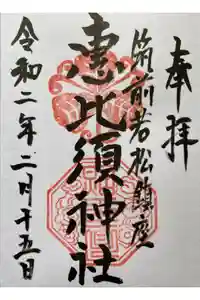 奉拝
筑前若松鎮座
恵比須神社
令和二年二月十五日